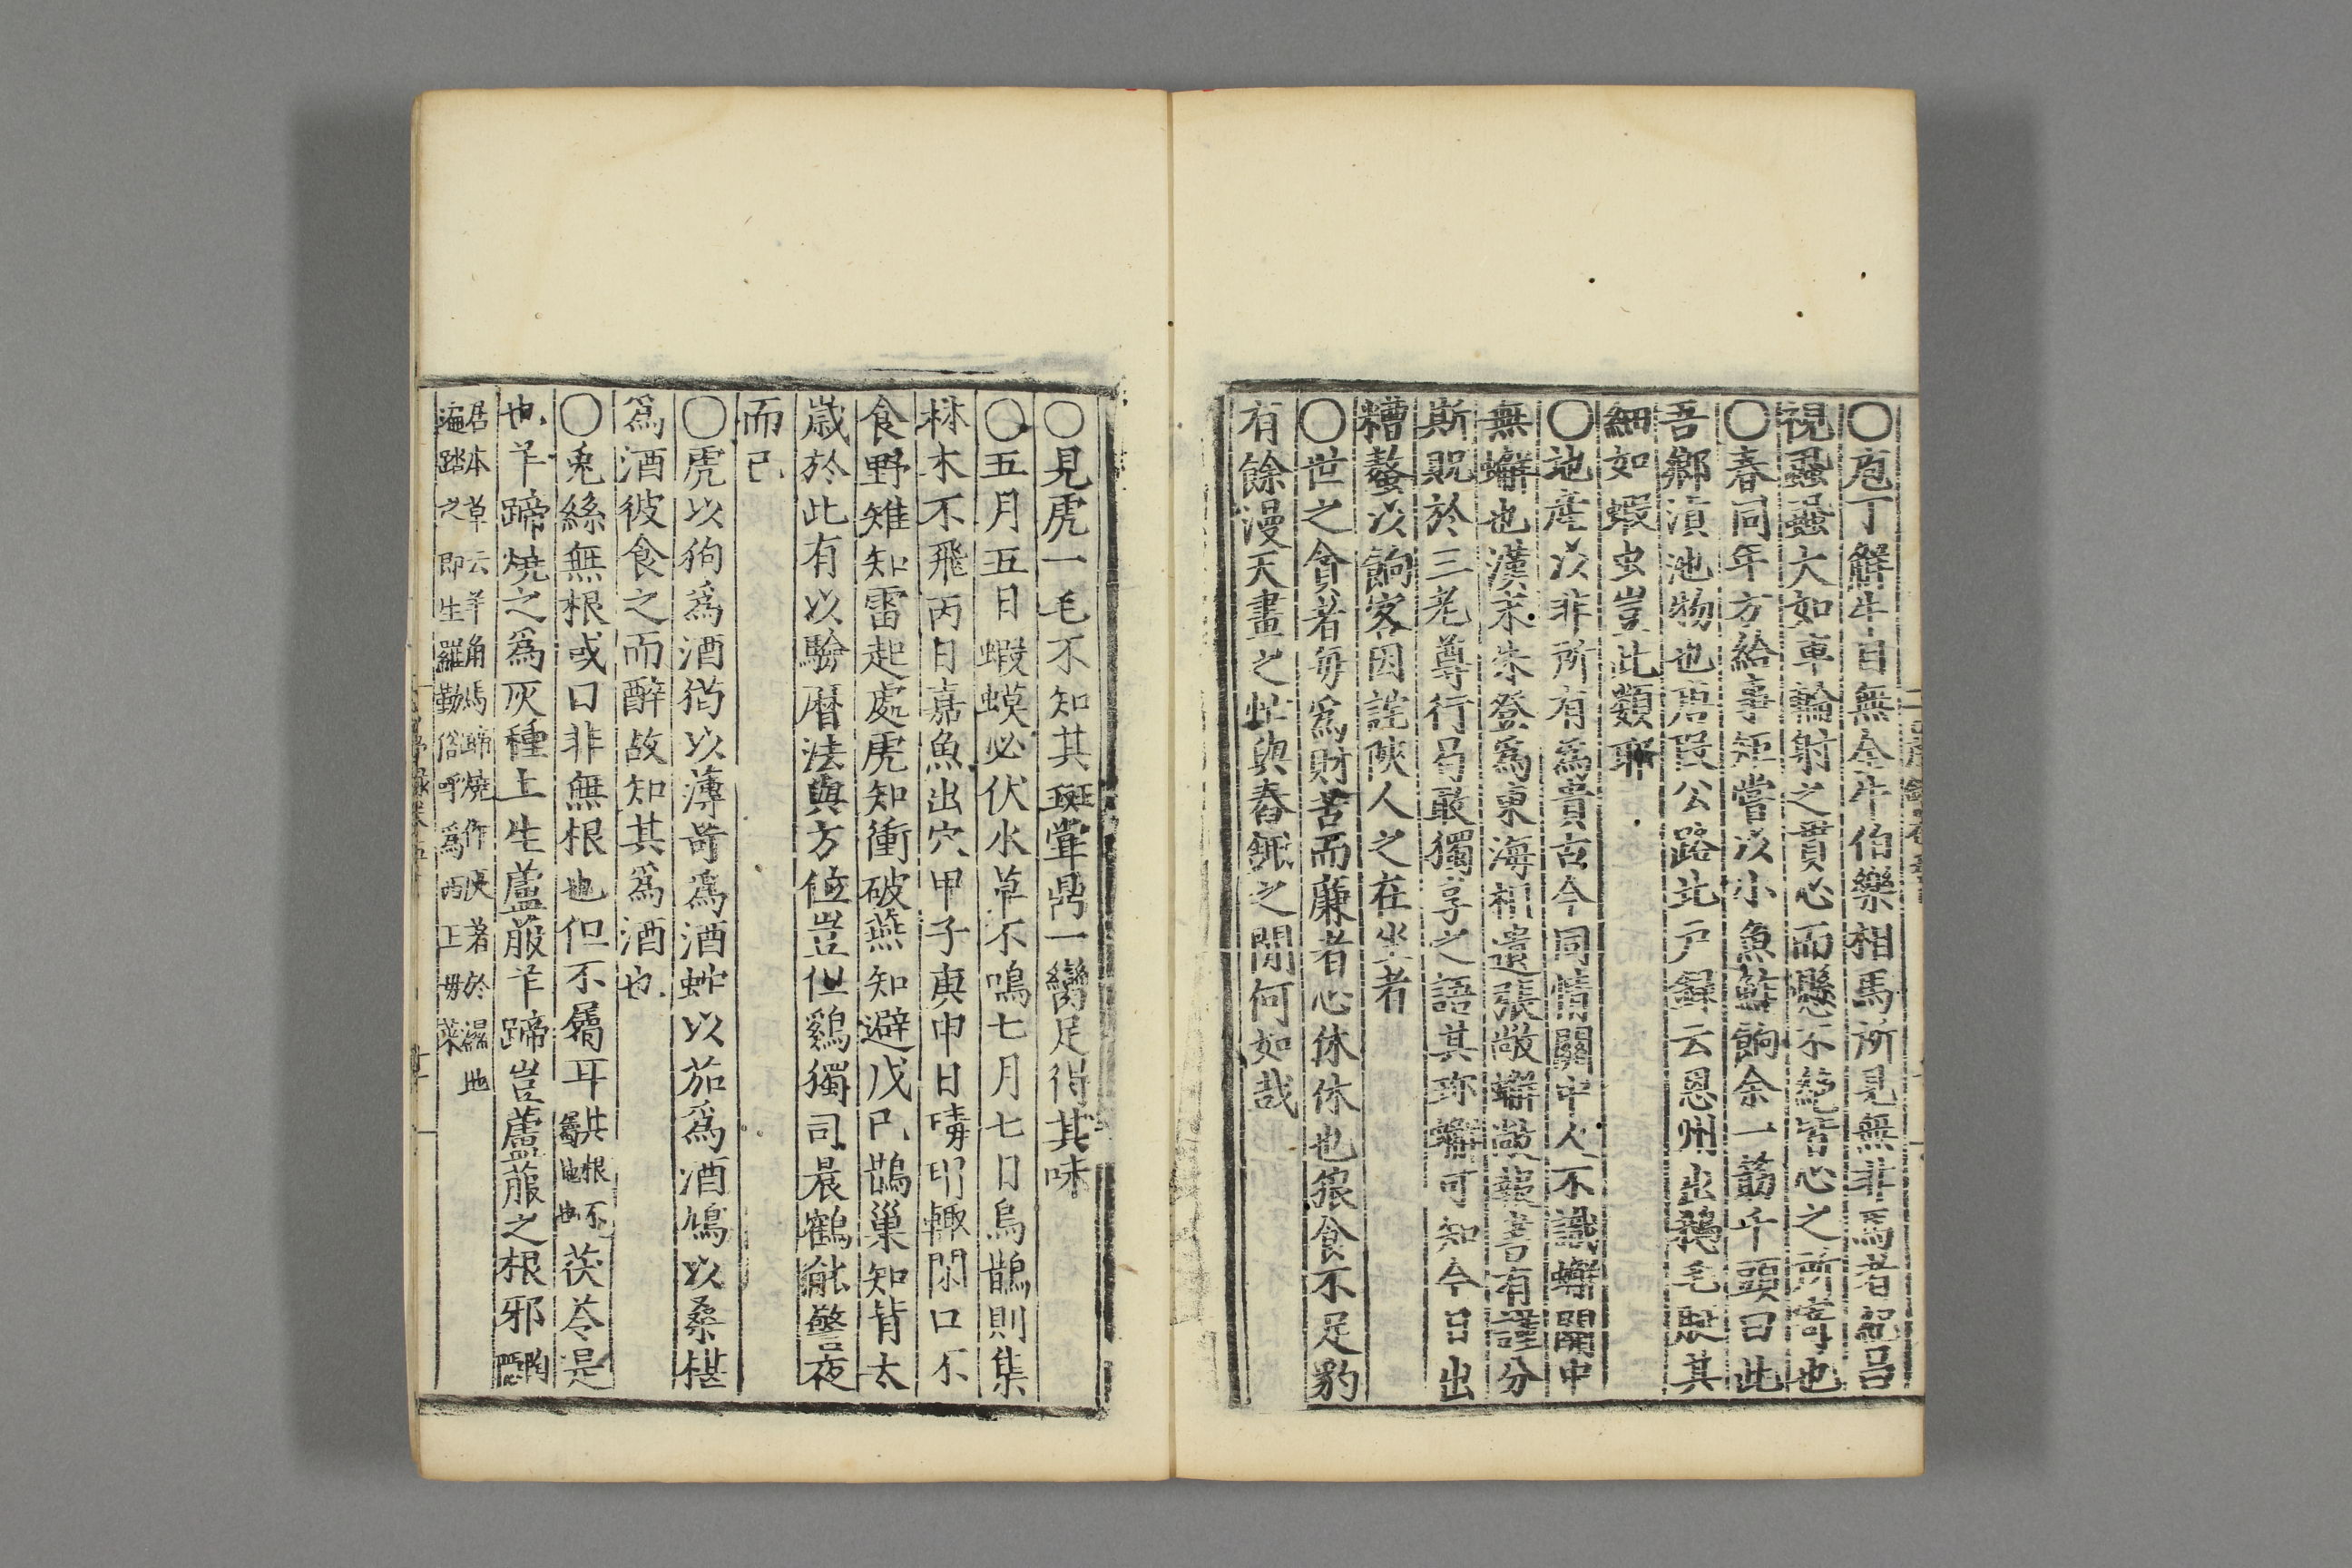 〇庖丁觧牛目無全牛伯樂相馬所見無非馬者紀昌
視蝨蝨大如車輪射之貫心而懸不絕皆心之所寄也
〇春同年方給事矩嘗以小魚鮓餉余一筯千頭曰此
吾鄉滇池物也唐段公路北戶錄云恩州出鵝毛脡其
細如蝦虫豈此類耶
〇地產以非所有為貴古今同情關中人不識蠏關中
無蠏也漢末朱登為東海相遺張敞蠏敞報書有謹分
斯貺於三老尊行曷敢獨享之語其珎蠏可知今日出
糟螯以餉客因詫陜人之在坐者
〇世之貪者每為財苦而廉者心休休也狼食不足豹
有餘漫天畫之忙與舂鉏之閒何如哉
〇見虎一毛不知其斑甞鼎一臠足得其味
〇五月五日蝦蟆必伏水草不鳴七月七日烏鵲則集
林木不飛丙日嘉魚出穴甲子庚申日硨卯輙閉口不
食野雉知雷起處虎知衝破燕知避戊巳鵲巢知背太
歲於此有以驗曆法與方位豈但鷄獨司晨鶴能警夜
而已
〇虎以狗為酒猫以薄荷為酒蛇以茄為酒鳩以桑椹
為酒彼食之而醉故知其為酒也
〇兎絲無根或曰非無根也但不屬耳其根不屬地也茯苓是
也羊蹄燒之為灰種土生蘆菔羊蹄豈蘆菔之根邪陶隱
居本草云羊角馬蹄燒作灰著於濕地
遍踏之即生羅勒俗呼為西王母菜